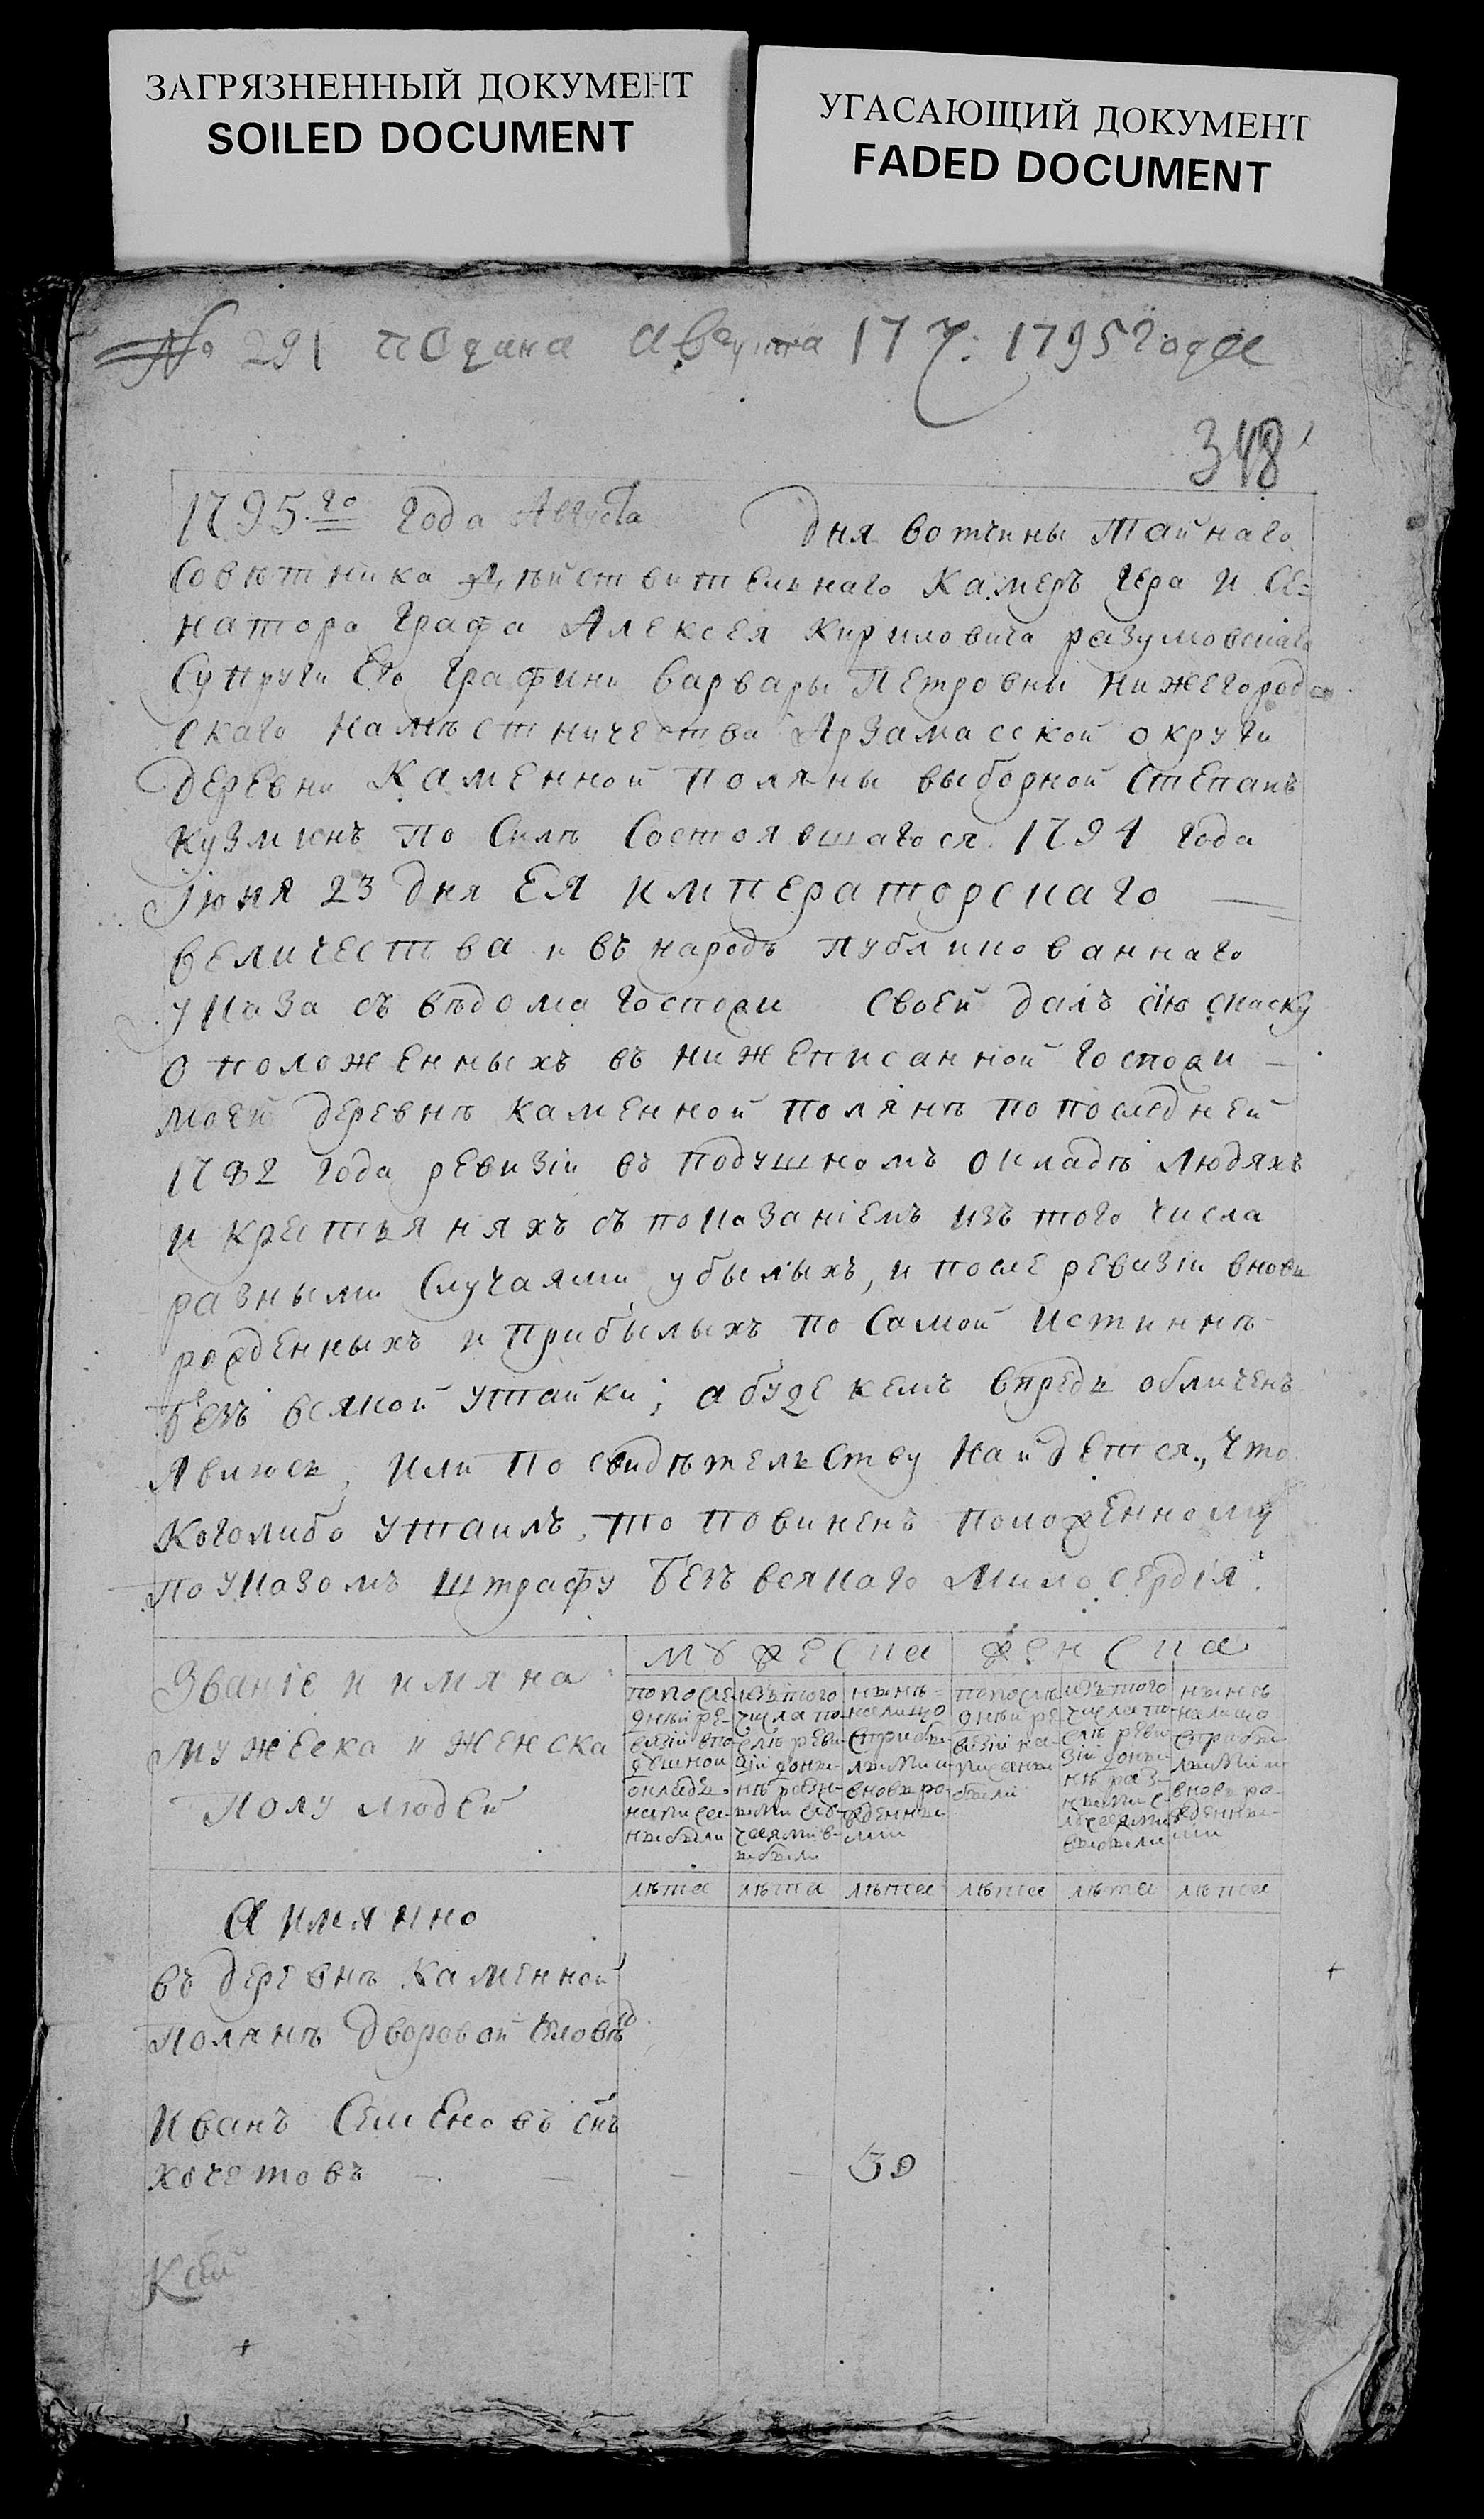 ЗАГРЯЗНЕННЫЙ ДОКУМЕНТ
SOILED DOCUMENT
УГАСАЮЩИЙ ДОКУМЕНТ
FADED DOCUMENT
№ 291 подана августа 17 ч: 1795 года
348
1795.го года Августа дня вотчины Тайнаго
Советника Действительнаго Камеръ гера и Се=
натора Графа Алексея Кириловича разумовскаго
Супруги Его Графини варвары Петровны нижегород
скаго наместничества Арзамасской округи
деревни Каменной поляны выборной Степанъ
Кузминъ по Силѣ Состоявшагося 1794 года
Іюня 23 дня ЕЯ императорскаго
величества и въ народъ публикованнаго
указа съ вѣдома госпожи своей далъ сію скаску
о положенныхъ въ нижеписанной госпожи
моей деревнѣ каменной полянѣ по последней
1782 года ревизіи въ подушномъ окладѣ людяхъ
и крестьяняхъ съ показаніемъ изъ того числа
разными Случаями убылыхъ, и после ревизіи вновь
рожденныхъ и прибылыхъ по Самой истиннѣ
безъ всякой утайки; а буде кемъ впредь обличенъ
явлюсь, или по свидѣтельству найдется, что
коголибо утаилъ, то повиненъ положенному
по указомъ штрафу безъ всякаго милосердія.
Званіе и имяна
мужеска и женска
полу людей
мужеска
женска
по после
дней ре-
визіи в по
душном
окладе
написа-
ны были
изъ того
числа по-
слѣ реви
зіи до ны-
нѣ разн-
ыми слу-
чаями в-
ыбыли
нынѣ
на лицо
с прибы
лыми и
вновь ро-
жденны-
ми
по послѣ
дней ре
визіи на-
писаны
были
изъ того
числа по-
слѣ реви
зіи до ны-
нѣ раз-
ными с-
лучаями
выбыли
нынѣ
на лицо
с прибы
лыми и
вновь ро-
жденны-
ми
лѣта лѣта лѣта лѣта лѣта лѣта
а имянно
въ деревнѣ Каменной
Полянѣ дворовой человѣ
Иванъ Семеновъ снъ
хочетовъ - - - - 30
Кей